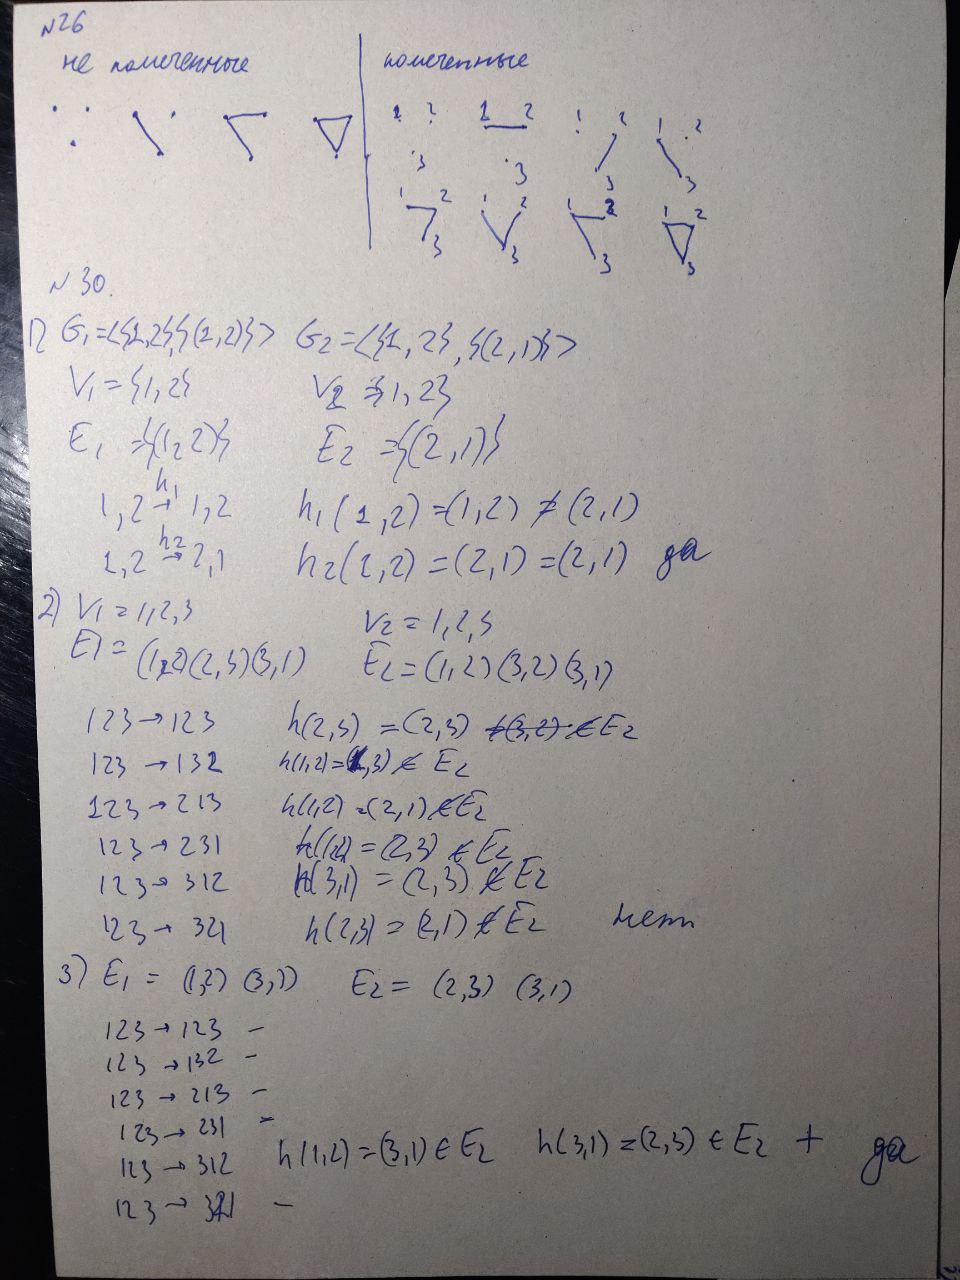 N26
не помеченные
помеченные
1 2 1 2 1 2 1 2
3 3 3 3
1 2 1 2 1 2 1 2
3 3 3 3
N 30.
1) G₁=<{1,2},{(1,2)}> G₂=<{1,2},{(2,1)}>
V₁={1,2} V₂={1,2}
E₁={(1,2)} E₂={(2,1)}
1,2 →h₁ 1,2 h₁(1,2)=(1,2)≠(2,1)
1,2 →h₂ 2,1 h₂(1,2)=(2,1)=(2,1) да
2) V₁=1,2,3 V₂=1,2,3
E₁=(1,2)(2,3)(3,1) E₂=(1,2)(3,2)(3,1)
123→123 h(2,3)=(2,3) ∉E₂
123→132 h(1,2)=(1,3)∉E₂
123→213 h(1,2)=(2,1)∉E₂
123→231 h(1,2)=(2,3)∉E₂
123→312 h(3,1)=(2,3)∉E₂
123→321 h(2,3)=(2,1)∉E₂ нет
3) E₁=(1,2)(3,1) E₂=(2,3)(3,1)
123→123 –
123→132 –
123→213 –
123→231 –
123→312 h(1,2)=(3,1)∈E₂ h(3,1)=(2,3)∈E₂ + да
123→321 –